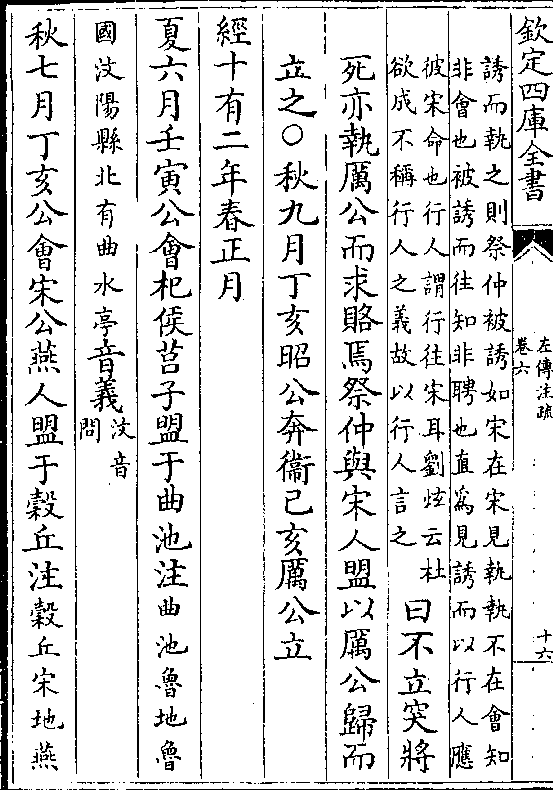 欽定四庫全書
左傳注疏
卷六
十六
誘而執之則祭仲被誘如宋在宋見執執不在會知
非會也被誘而往知非聘也直為見誘而以行人應
彼宋命也行人謂行往宋耳劉炫云杜
欲成不稱行人之義故以行人言之
曰不立突將
死亦執厲公而求賂焉祭仲與宋人盟以厲公歸而
立之○秋九月丁亥昭公奔衞己亥厲公立
經十有二年春正月
夏六月壬寅公會杞侯莒子盟于曲池注曲池魯地魯
國汶陽縣北有曲水亭音義汶音
問
秋七月丁亥公會宋公燕人盟于穀丘注穀丘宋地燕